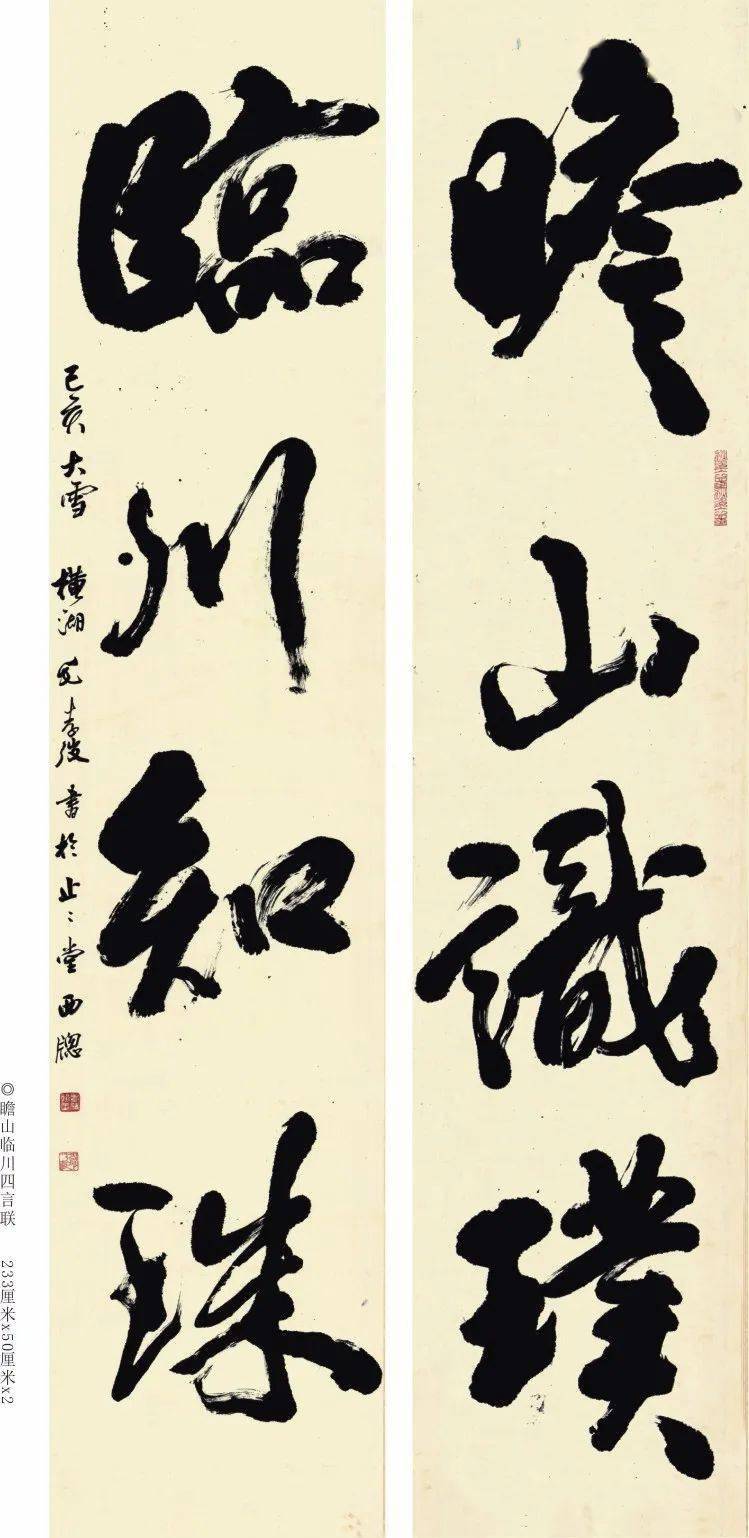 瞻山識璞
臨川知珠
己亥大雪 橫湖毛孝弢書於止止堂西牕
◎瞻山临川四言联 233厘米x50厘米x2